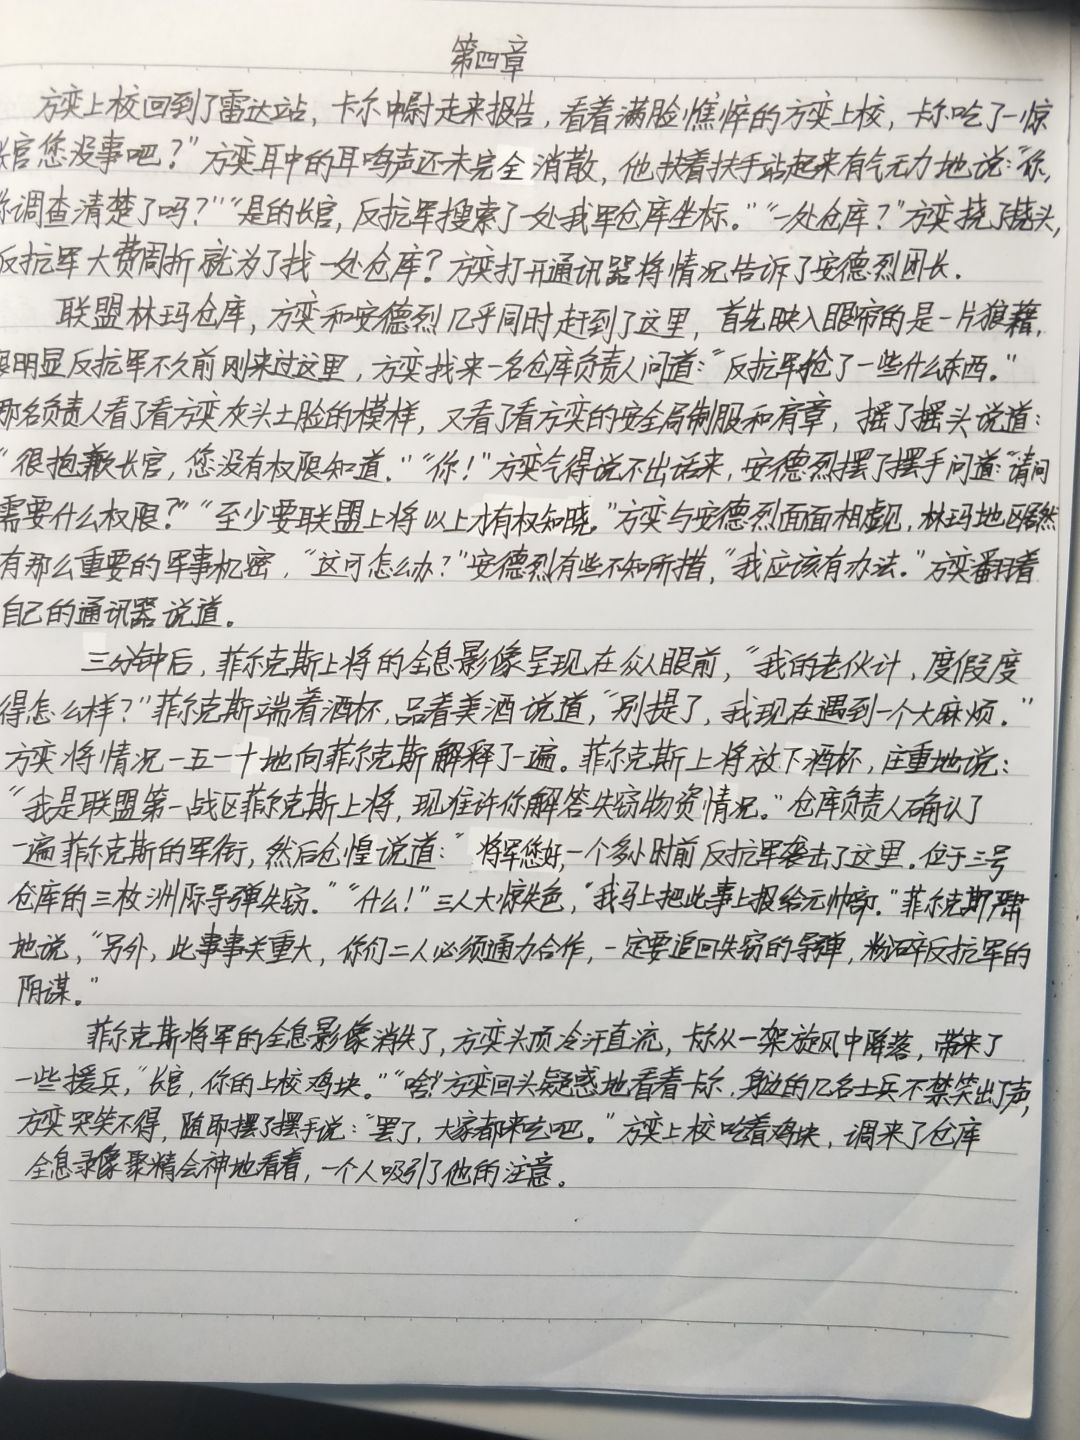 第四章
方奕上校回到了雷达站，卡尔中尉走来报告，看着满脸憔悴的方奕上校，卡尔吃了一惊
长官您没事吧？”方奕耳中的耳鸣声还未完全消散，他扶着扶手站起来有气无力地说：“你，
你调查清楚了吗？”“是的长官，反抗军搜索了一处我军仓库坐标。”“一处仓库？”方奕挠了挠头，
反抗军大费周折就为了找一处仓库？方奕打开通讯器将情况告诉了安德烈团长.
联盟林玛仓库，方奕和安德烈几乎同时赶到了这里，首先映入眼帘的是一片狼藉，
很明显反抗军不久前刚来过这里，方奕找来一名仓库负责人问道：“反抗军抢了一些什么东西。”
那名负责人看了看方奕灰头土脸的模样，又看了看方奕的安全局制服和肩章，摇了摇头说道：
“很抱歉长官，您没有权限知道.”“你！”方奕气得说不出话来，安德烈摆了摆手问道：“请问
需要什么权限？”“至少要联盟上将以上才有权知晓。”方奕与安德烈面面相觑，林玛地区居然
有那么重要的军事机密，“这可怎么办？”安德烈有些不知所措，“我应该有办法。”方奕翻着
自己的通讯器说道。
三分钟后，菲尔克斯上将的全息影像呈现在众人眼前，“我的老伙计，度假度
得怎么样？”菲尔克斯端着酒杯，品着美酒说道，“别提了，我现在遇到一个大麻烦。”
方奕将情况一五一十地向菲尔克斯解释了一遍。菲尔克斯上将放下酒杯，庄重地说：
“我是联盟第一战区菲尔克斯上将，现准许你解答失窃物资情况。”仓库负责人确认了
一遍菲尔克斯的军衔，然后仓惶说道：“将军您好,一个多小时前反抗军袭击了这里.位于三号
仓库的三枚洲际导弹失窃.”“什么！”三人大惊失色，“我马上把此事上报给元帅部.”菲尔克斯严肃
地说，“另外，此事事关重大，你们二人必须通力合作，一定要追回失窃的导弹，粉碎反抗军的
阴谋。”
菲尔克斯将军的全息影像消失了，方奕头顶冷汗直流，卡尔从一架旋风中降落，带来了
一些援兵，“长官，你的上校鸡块.”“啥？”方奕回头疑惑地看着卡尔，身边的几名士兵不禁笑出了声，
方奕哭笑不得，随即摆了摆手说：“罢了，大家都来吃吧。”方奕上校吃着鸡块，调来了仓库
全息录像聚精会神地看着，一个人吸引了他的注意。